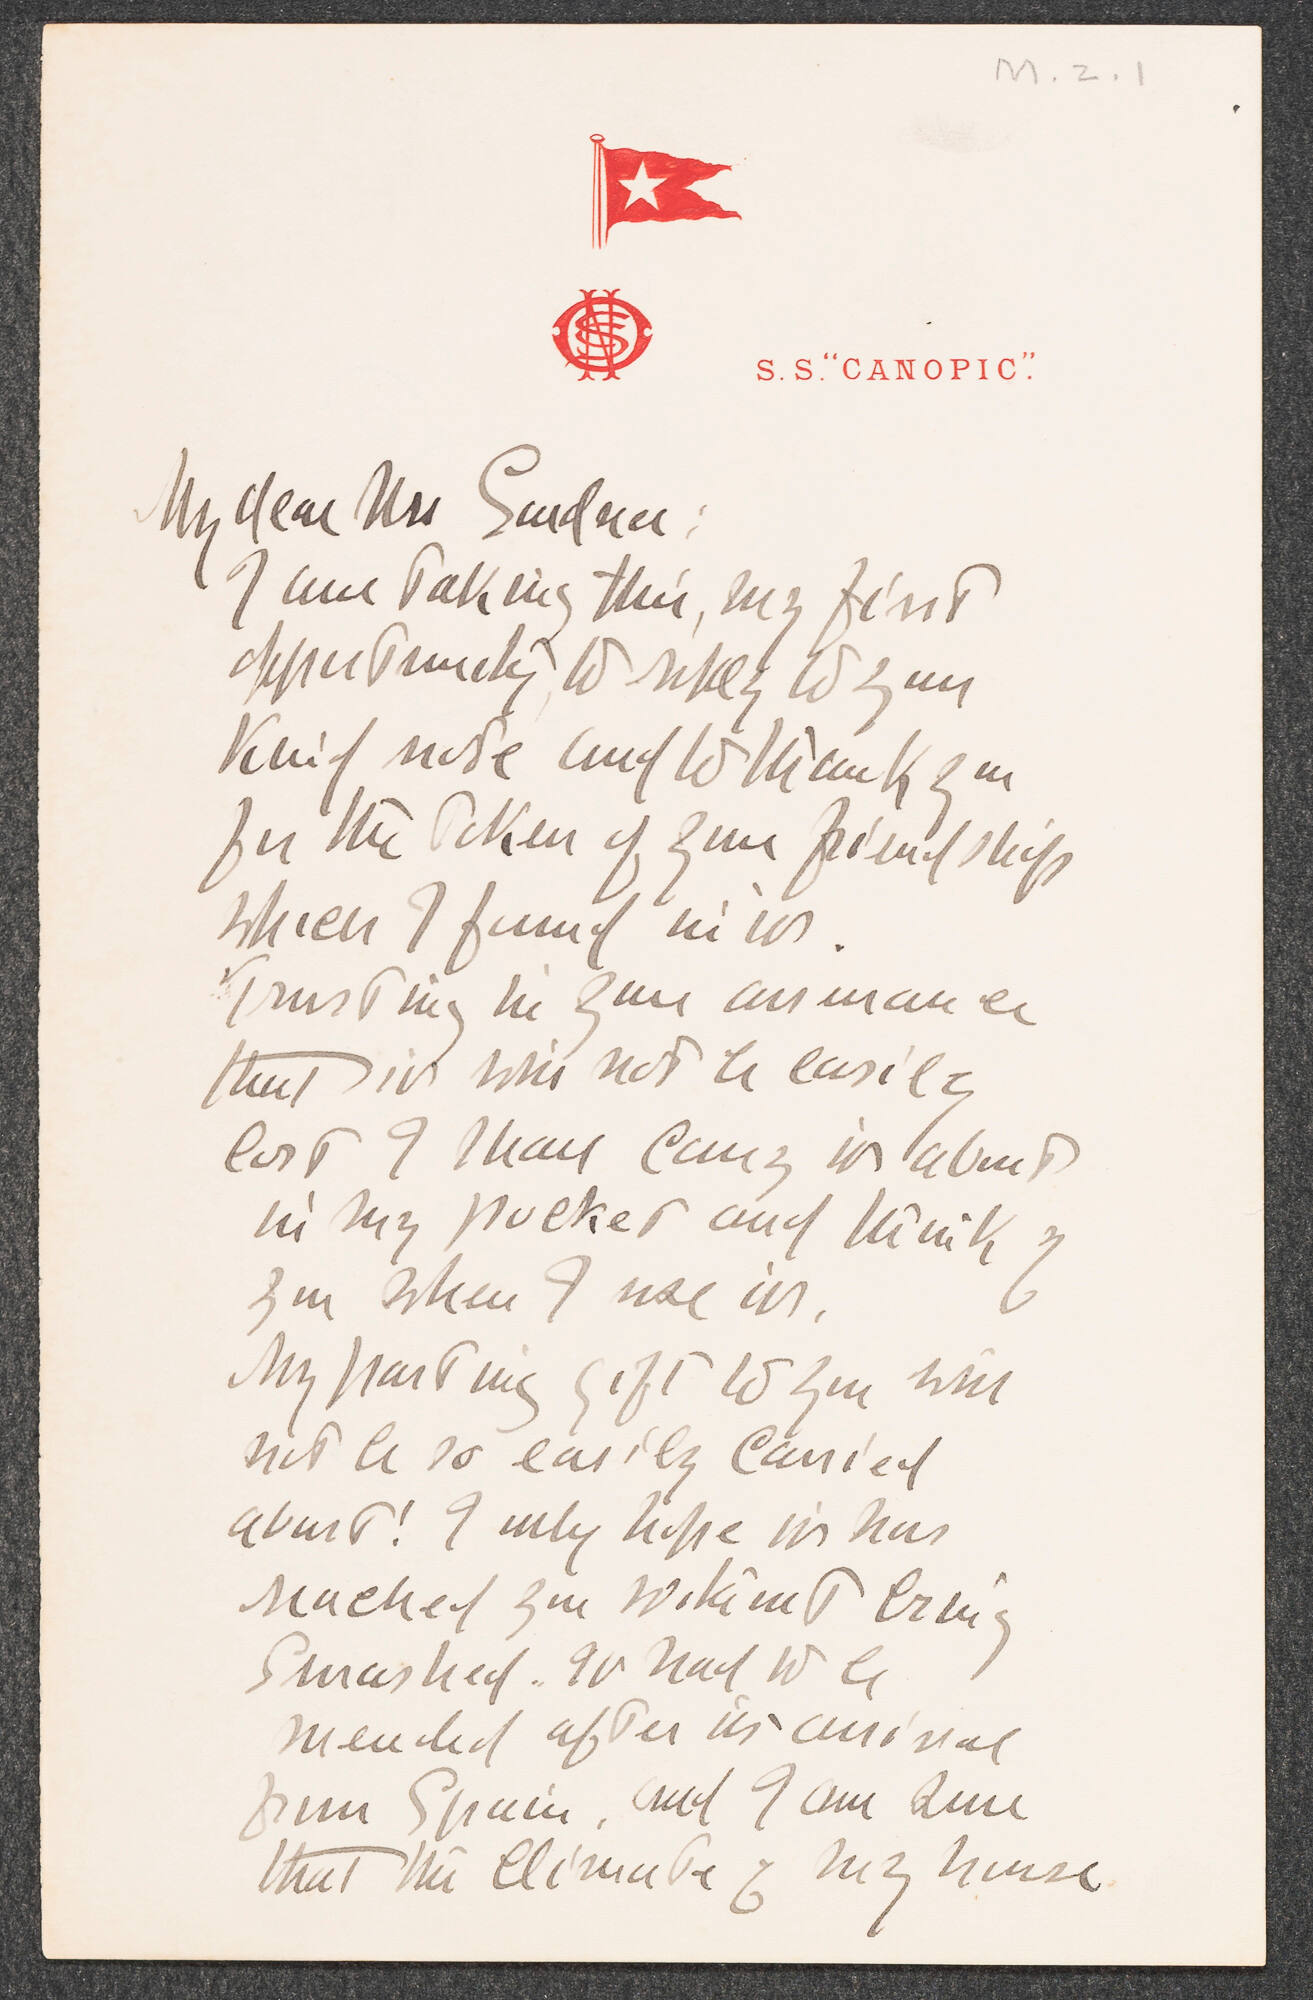 M.2.1
S.S. "CANOPIC".
My dear Mrs Gardner:
I am taking this, my first
opportunity, to reply to your
kind note and to thank you
for the token of your friendship
which I found in it.
Trusting in your assurance
that it will not be easily
lost I shall carry it about
in my pocket and think of
you when I use it.
My parting gift to you will
not be so easily carried
about! I only hope it has
reached you without being
smashed. It had to be
mended after its arrival
from Spain, and I am sure
that the climate of my house